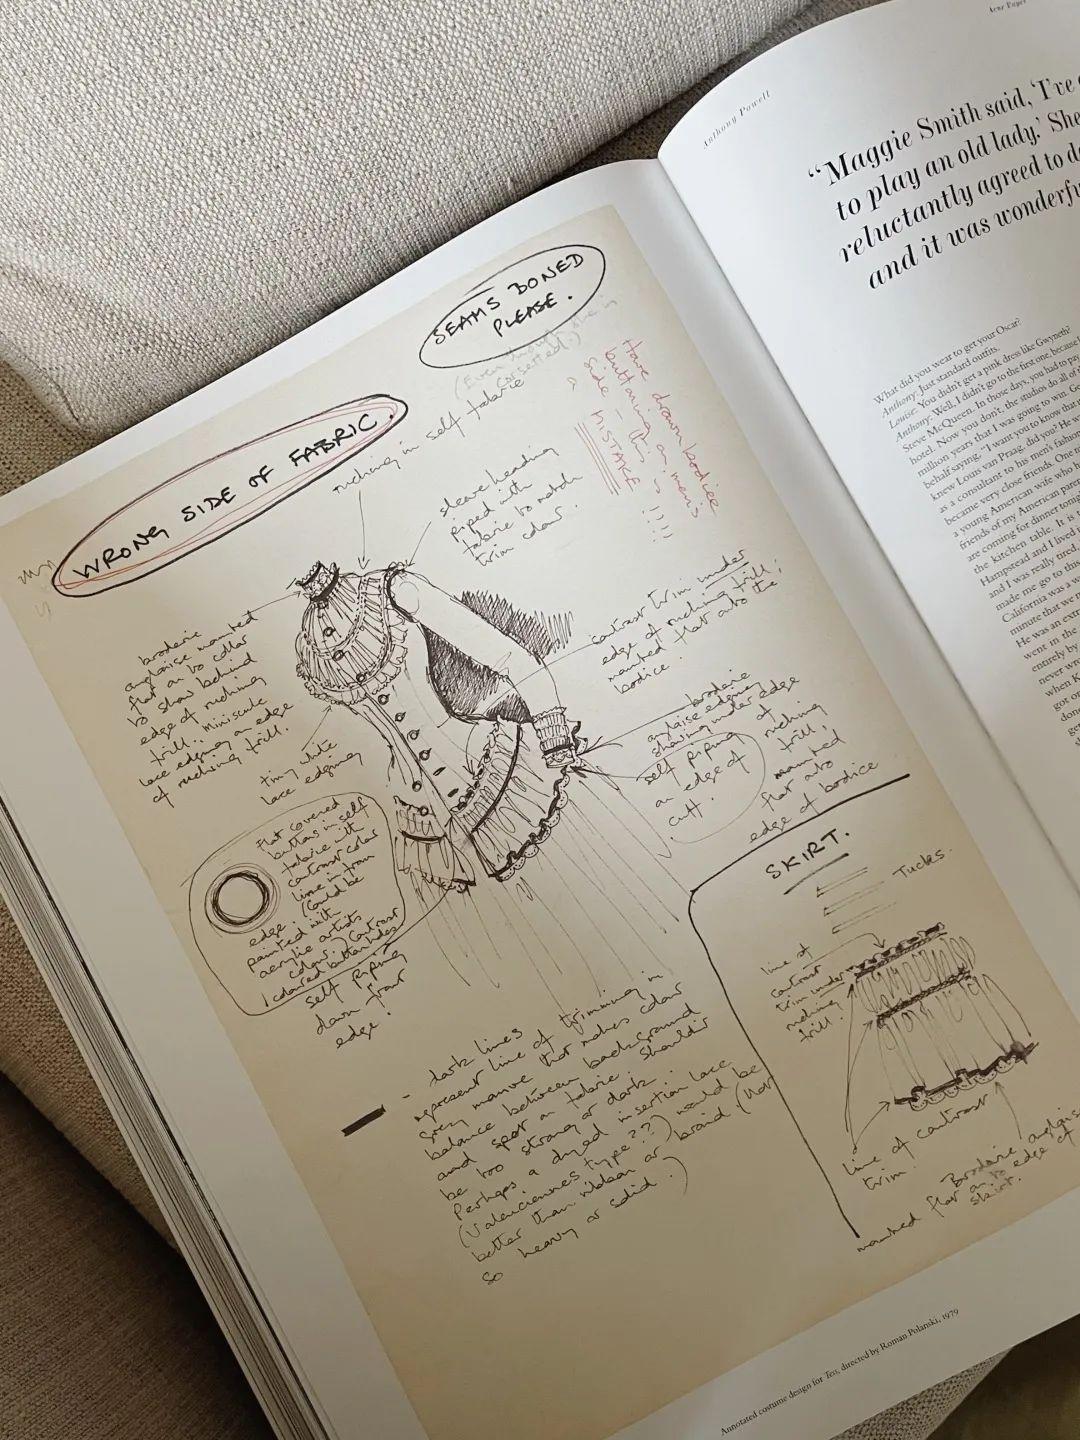 SEAMS BONED
PLEASE.
(Even though she is
corsetted.)
WRONG SIDE OF FABRIC.
Have drawn bodice
buttoning on men's
side - this is
A MISTAKE !!!!
ruching in self fabric
sleeve heading
piped with
fabric to match
trim colour.
broderie
anglaise mounted
flat on to collar
to show behind
edge of ruching
frill. Miniscule
lace edging on edge
of ruching frill.
tiny white
lace edging
contrast trim under
edge of ruching frill,
mounted flat onto the
bodice.
broderie
anglaise edging
showing under edge
of ruching
frill,
mounted
flat onto
edge of bodice
self piping
on edge of
cuff.
Flat covered
buttons in self
fabric with
contrast colour
line in from
edge. (Could be
painted with
acrylic artists
colour.) Contrast
coloured button holes
self piping
down front
edge.
- dark lines
represent line of trimming in
grey mauve that makes colour
balance between background
and spot on fabric. Shouldn't
be too strong or dark.
Perhaps a dyed insertion lace
(Valenciennes type??) would be
better than ribbon or braid. (Not
so heavy or solid.)
SKIRT.
Tucks.
line of
contrast
trim under
ruching
frill.
line of contrast
trim.
Broderie anglaise
mounted flat on to edge of
skirt.
Annotated costume design for Tess, directed by Roman Polanski, 1979
Anthony Powell
Acne Paper
“Maggie Smith said, ‘I've
to play an old lady.’ She
reluctantly agreed to
and it was wonderfu
What did you wear to get your Oscar?
Anthony: Just standard outfits.
Louise: You didn't get a pink dress like Gwyneth?
Anthony: Well, I didn't go to the first one, because
Steve McQueen. In those days, you had to pay
hotel. Now you don't, the studios do all of
million years that I was going to win.
half saying, “I want you to know that
knew Louis van Praag, did you? He w
as a consultant to his men's fashion
became very close friends. One n
a young American wife who h
friends of my American paren
are coming for dinner tonig
the kitchen table. It is
Hampstead and I lived i
and I was really tired,
made me go to this
California was a w
minute that we
He was an extr
went in the
entirely by
never wro
when K
got o
don